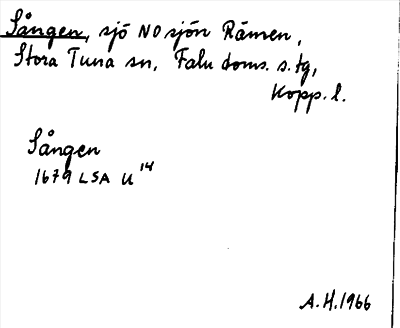 Sången, sjö NO sjön Rämen,
Stora Tuna sn, Falu doms. s. tg,
Kopp. l.
Sången
1679 LSA U 14
A.H. 1966